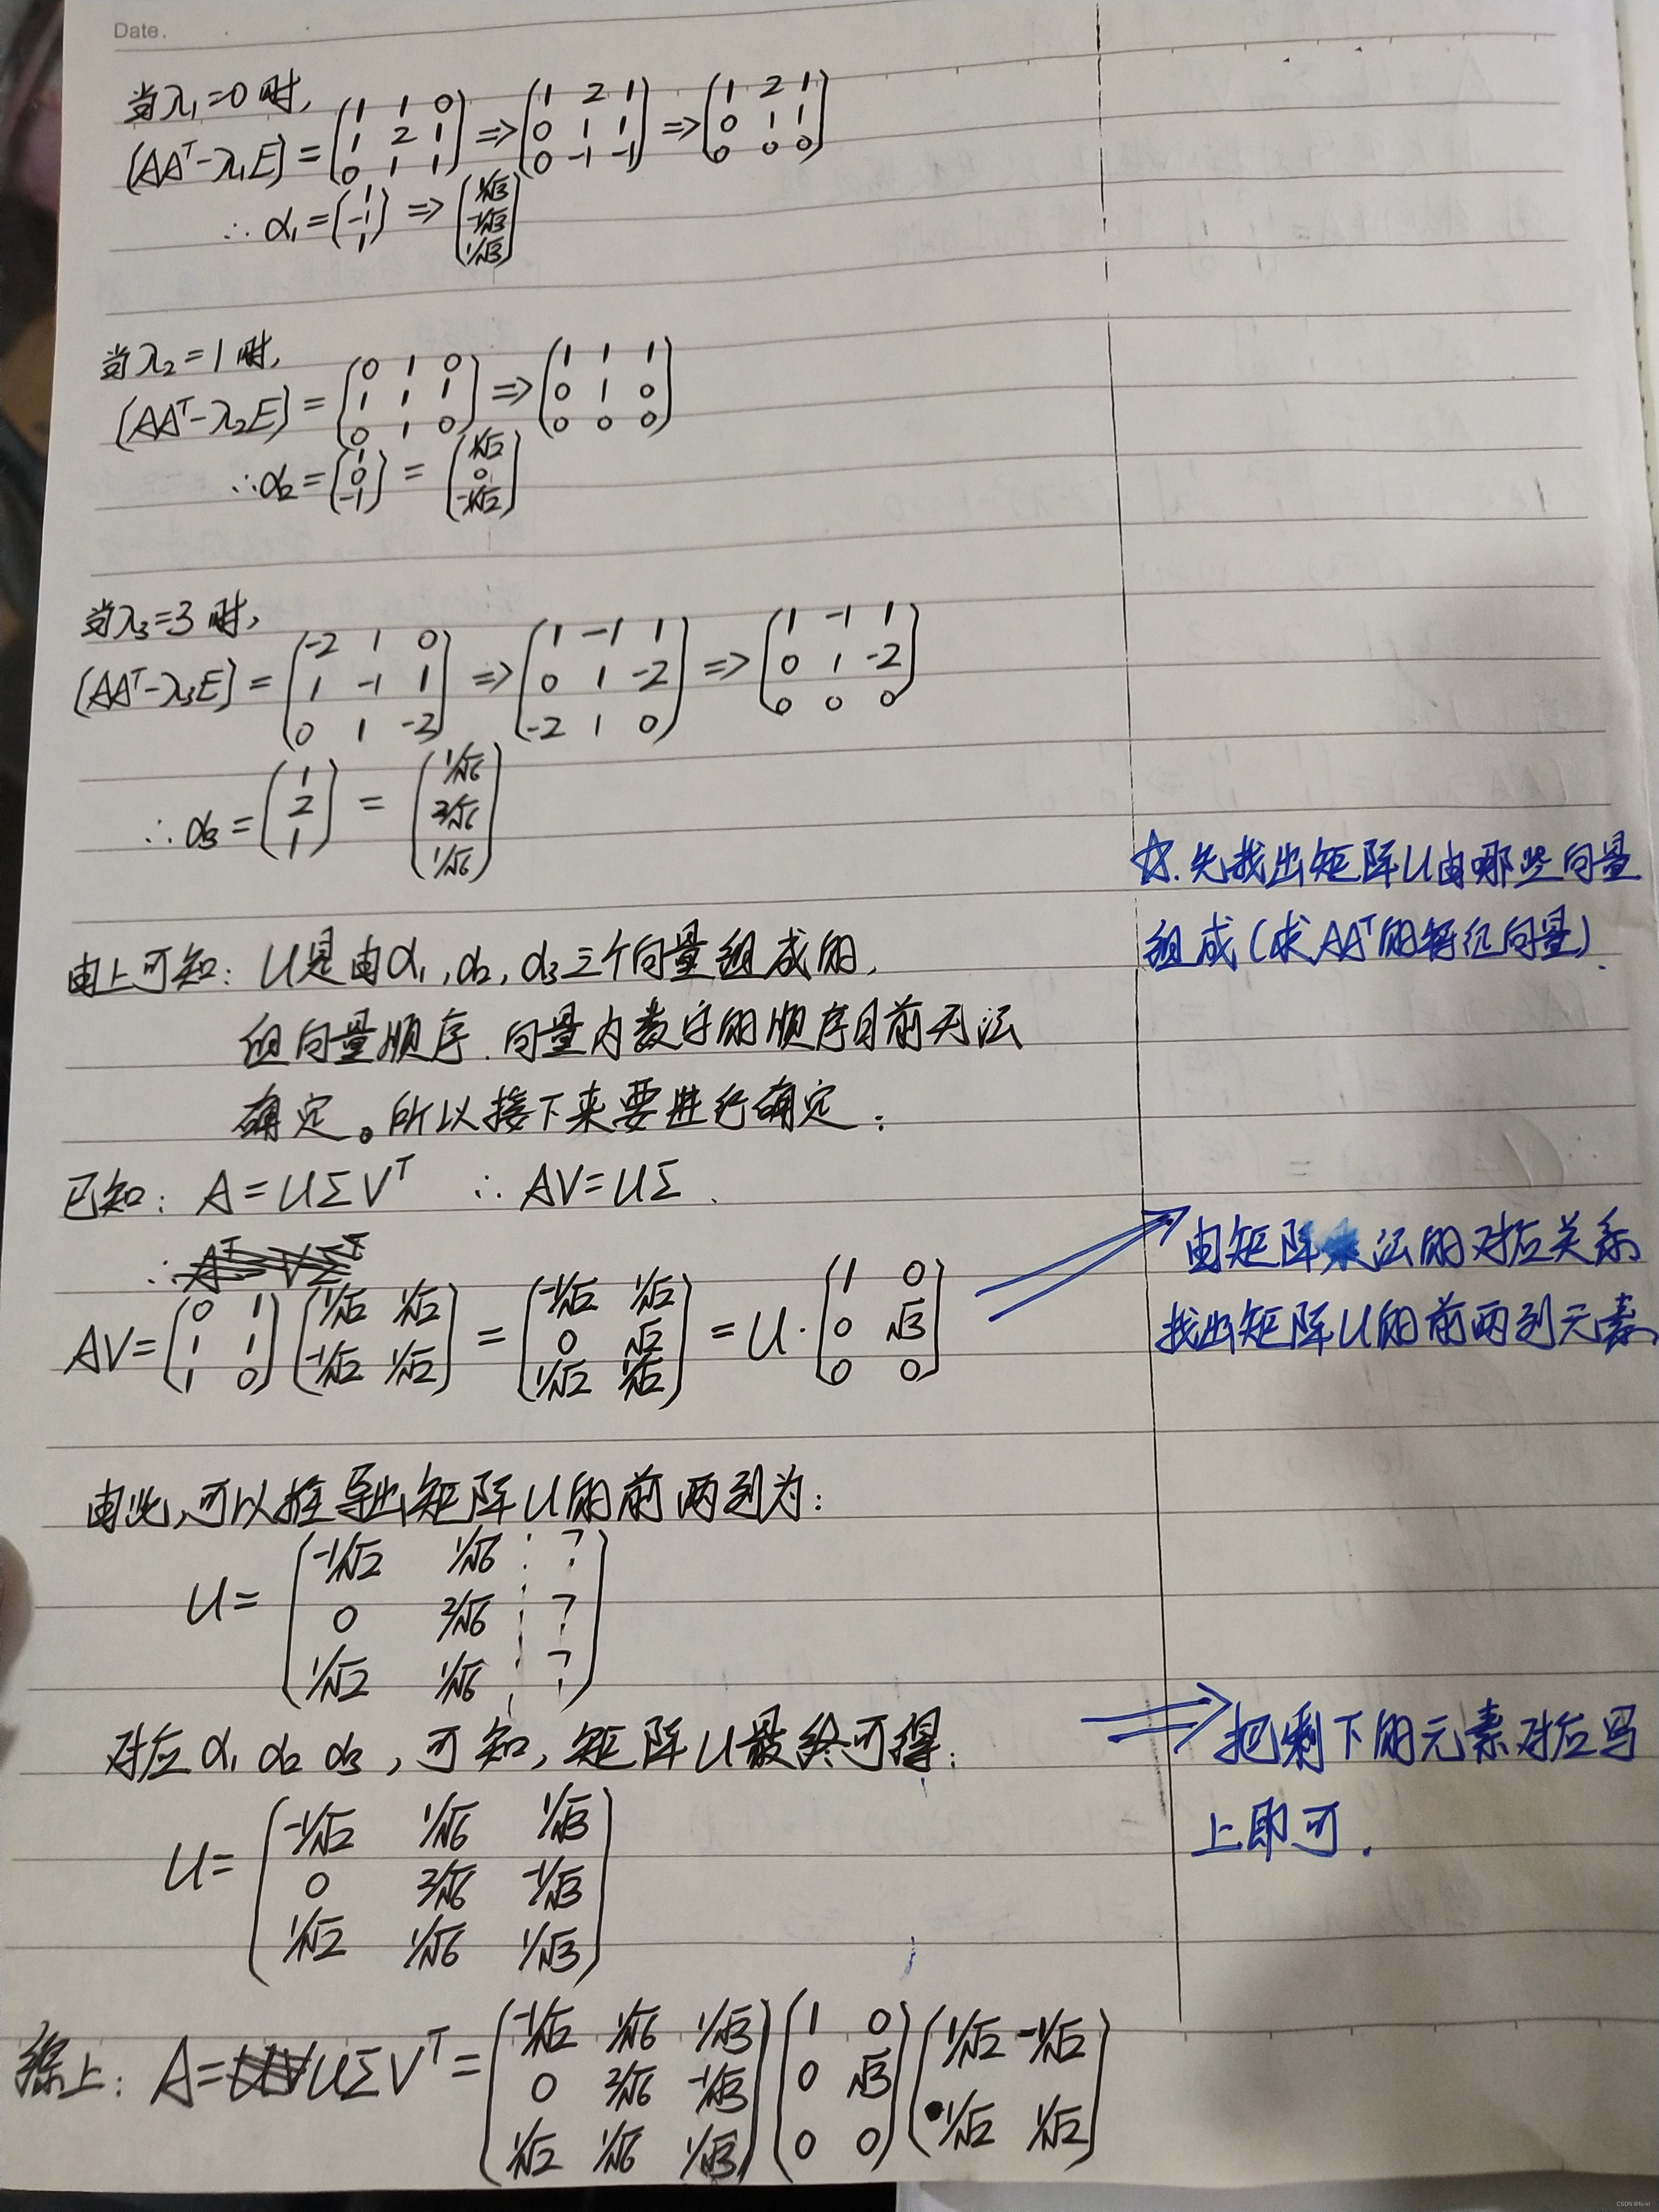 Date.
当λ₁=0时,
(AAᵀ-λ₁E) = (1 1 0; 1 2 1; 0 1 1) => (1 2 1; 0 1 1; 0 -1 -1) => (1 2 1; 0 1 1; 0 0 0)
∴ α₁ = (1; -1; 1) => (1/√3; -1/√3; 1/√3)
当λ₂=1时,
(AAᵀ-λ₂E) = (0 1 0; 1 1 1; 0 1 0) => (1 1 1; 0 1 0; 0 0 0)
∴ α₂ = (1; 0; -1) = (1/√2; 0; -1/√2)
当λ₃=3时,
(AAᵀ-λ₃E) = (-2 1 0; 1 -1 1; 0 1 -2) => (1 -1 1; 0 1 -2; -2 1 0) => (1 -1 1; 0 1 -2; 0 0 0)
∴ α₃ = (1; 2; 1) = (1/√6; 2/√6; 1/√6)
☆.先找出矩阵U由哪些向量
组成(求AAᵀ的特征向量).
由上可知: U是由α₁,α₂,α₃三个向量组成的,
但向量顺序.向量内数字的顺序目前无法
确定。所以接下来要进行确定:
已知: A=UΣVᵀ ∴ AV=UΣ.
AV = (0 1; 1 1; 1 0) (1/√2 1/√2; -1/√2 1/√2) = (-1/√2 1/√2; 0 √2; 1/√2 1/√2) = U·(1 0; 0 √3; 0 0)
由矩阵乘法的对应关系
找出矩阵U的前两列元素
由此,可以推导出矩阵U的前两列为:
U = (-1/√2 1/√6 ?; 0 2/√6 ?; 1/√2 1/√6 ?)
对应α₁ α₂ α₃,可知,矩阵U最终可得:
=> 把剩下的元素对应写
上即可.
U = (-1/√2 1/√6 1/√3; 0 2/√6 -1/√3; 1/√2 1/√6 1/√3)
综上: A=UΣVᵀ = (-1/√2 1/√6 1/√3; 0 2/√6 -1/√3; 1/√2 1/√6 1/√3) (1 0; 0 √3; 0 0) (1/√2 -1/√2; 1/√2 1/√2)